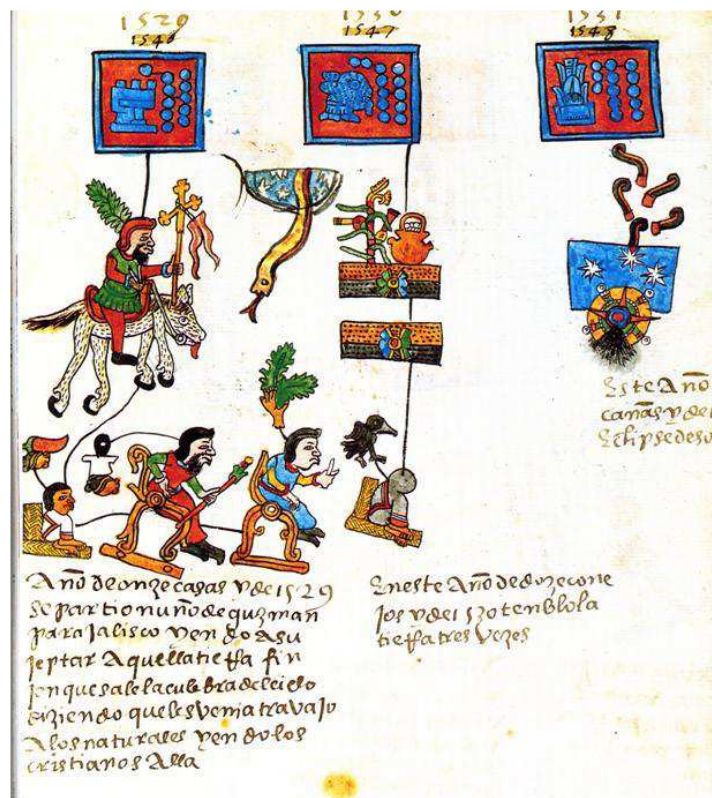 1529
1546
1530
1547
1531
1548
Este Año
cañas y de 1
Eclipse de so
Año de onze casas y de 1529
se partio nuño de guzman
para Jalisco yendo a su
jeptar Aquella tieRa fin
jen que sale la culebra del cielo
diziendo que les venia travajo
A los naturales yendo los
cristianos Alla
En este Año de doze cone
jos y de 1530 tenblo la
tieRa tres vezes